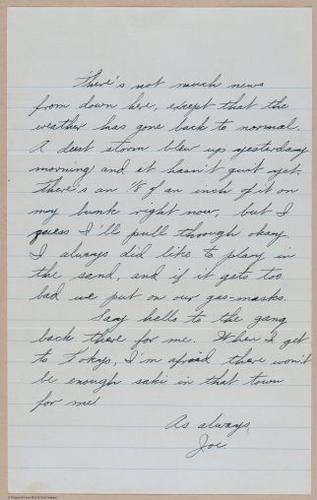 There's not much news
from down here, except that the
weather has gone back to normal.
A dust storm blew up yesterday
morning and it hasn't quit yet.
There's an 1/8 of an inch of it on
my bunk right now, but I
guess I'll pull through okay.
I always did like to play in
the sand, and if it gets too
bad we put on our gas-masks.
Say hello to the gang
back there for me. When I get
to Tokyo, I'm afraid there won't
be enough saki in that town
for me!
As always,
Joe.